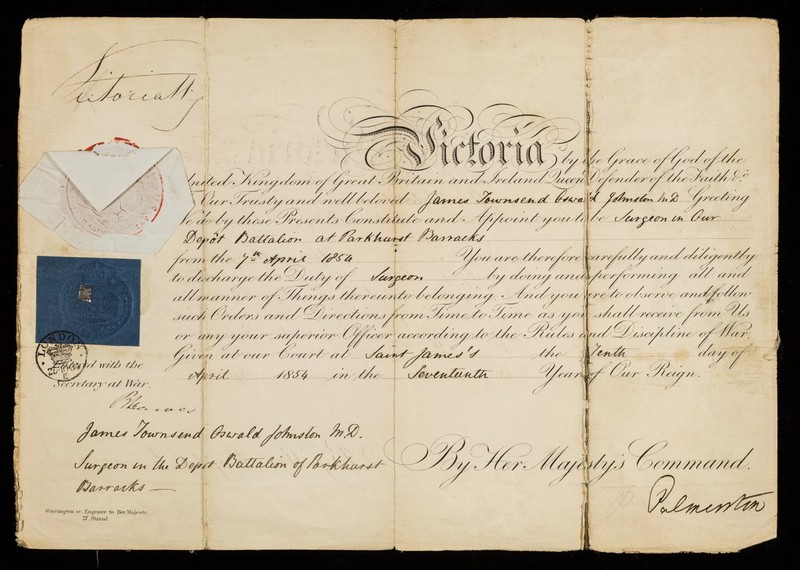 Victoria R
Victoria by the Grace of God of the
United Kingdom of Great Britain and Ireland Queen Defender of the Faith &c
Our Trusty and well beloved James Townsend Oswald Johnston M.D. Greeting
We do by these Presents Constitute and Appoint you to be Surgeon in Our
Depôt Battalion at Parkhurst Barracks
from the 7th April 1854 You are therefore carefully and diligently
to discharge the Duty of Surgeon by doing and performing all and
all manner of Things thereunto belonging. And you are to observe and follow
such Orders and Directions from Time to Time as you shall receive from Us
or any your superior Officer according to the Rules and Discipline of War.
Given at our Court at Saint James's the Tenth day of
April 1854 in the Seventeenth Year of Our Reign.
LONDON
with the
Secretary at War.
James Townsend Oswald Johnston M.D.
Surgeon in the Depot Battalion of Parkhurst
Barracks —
By Her Majesty's Command.
Palmerston
Warrington sc. Engraver to Her Majesty.
27, Strand.